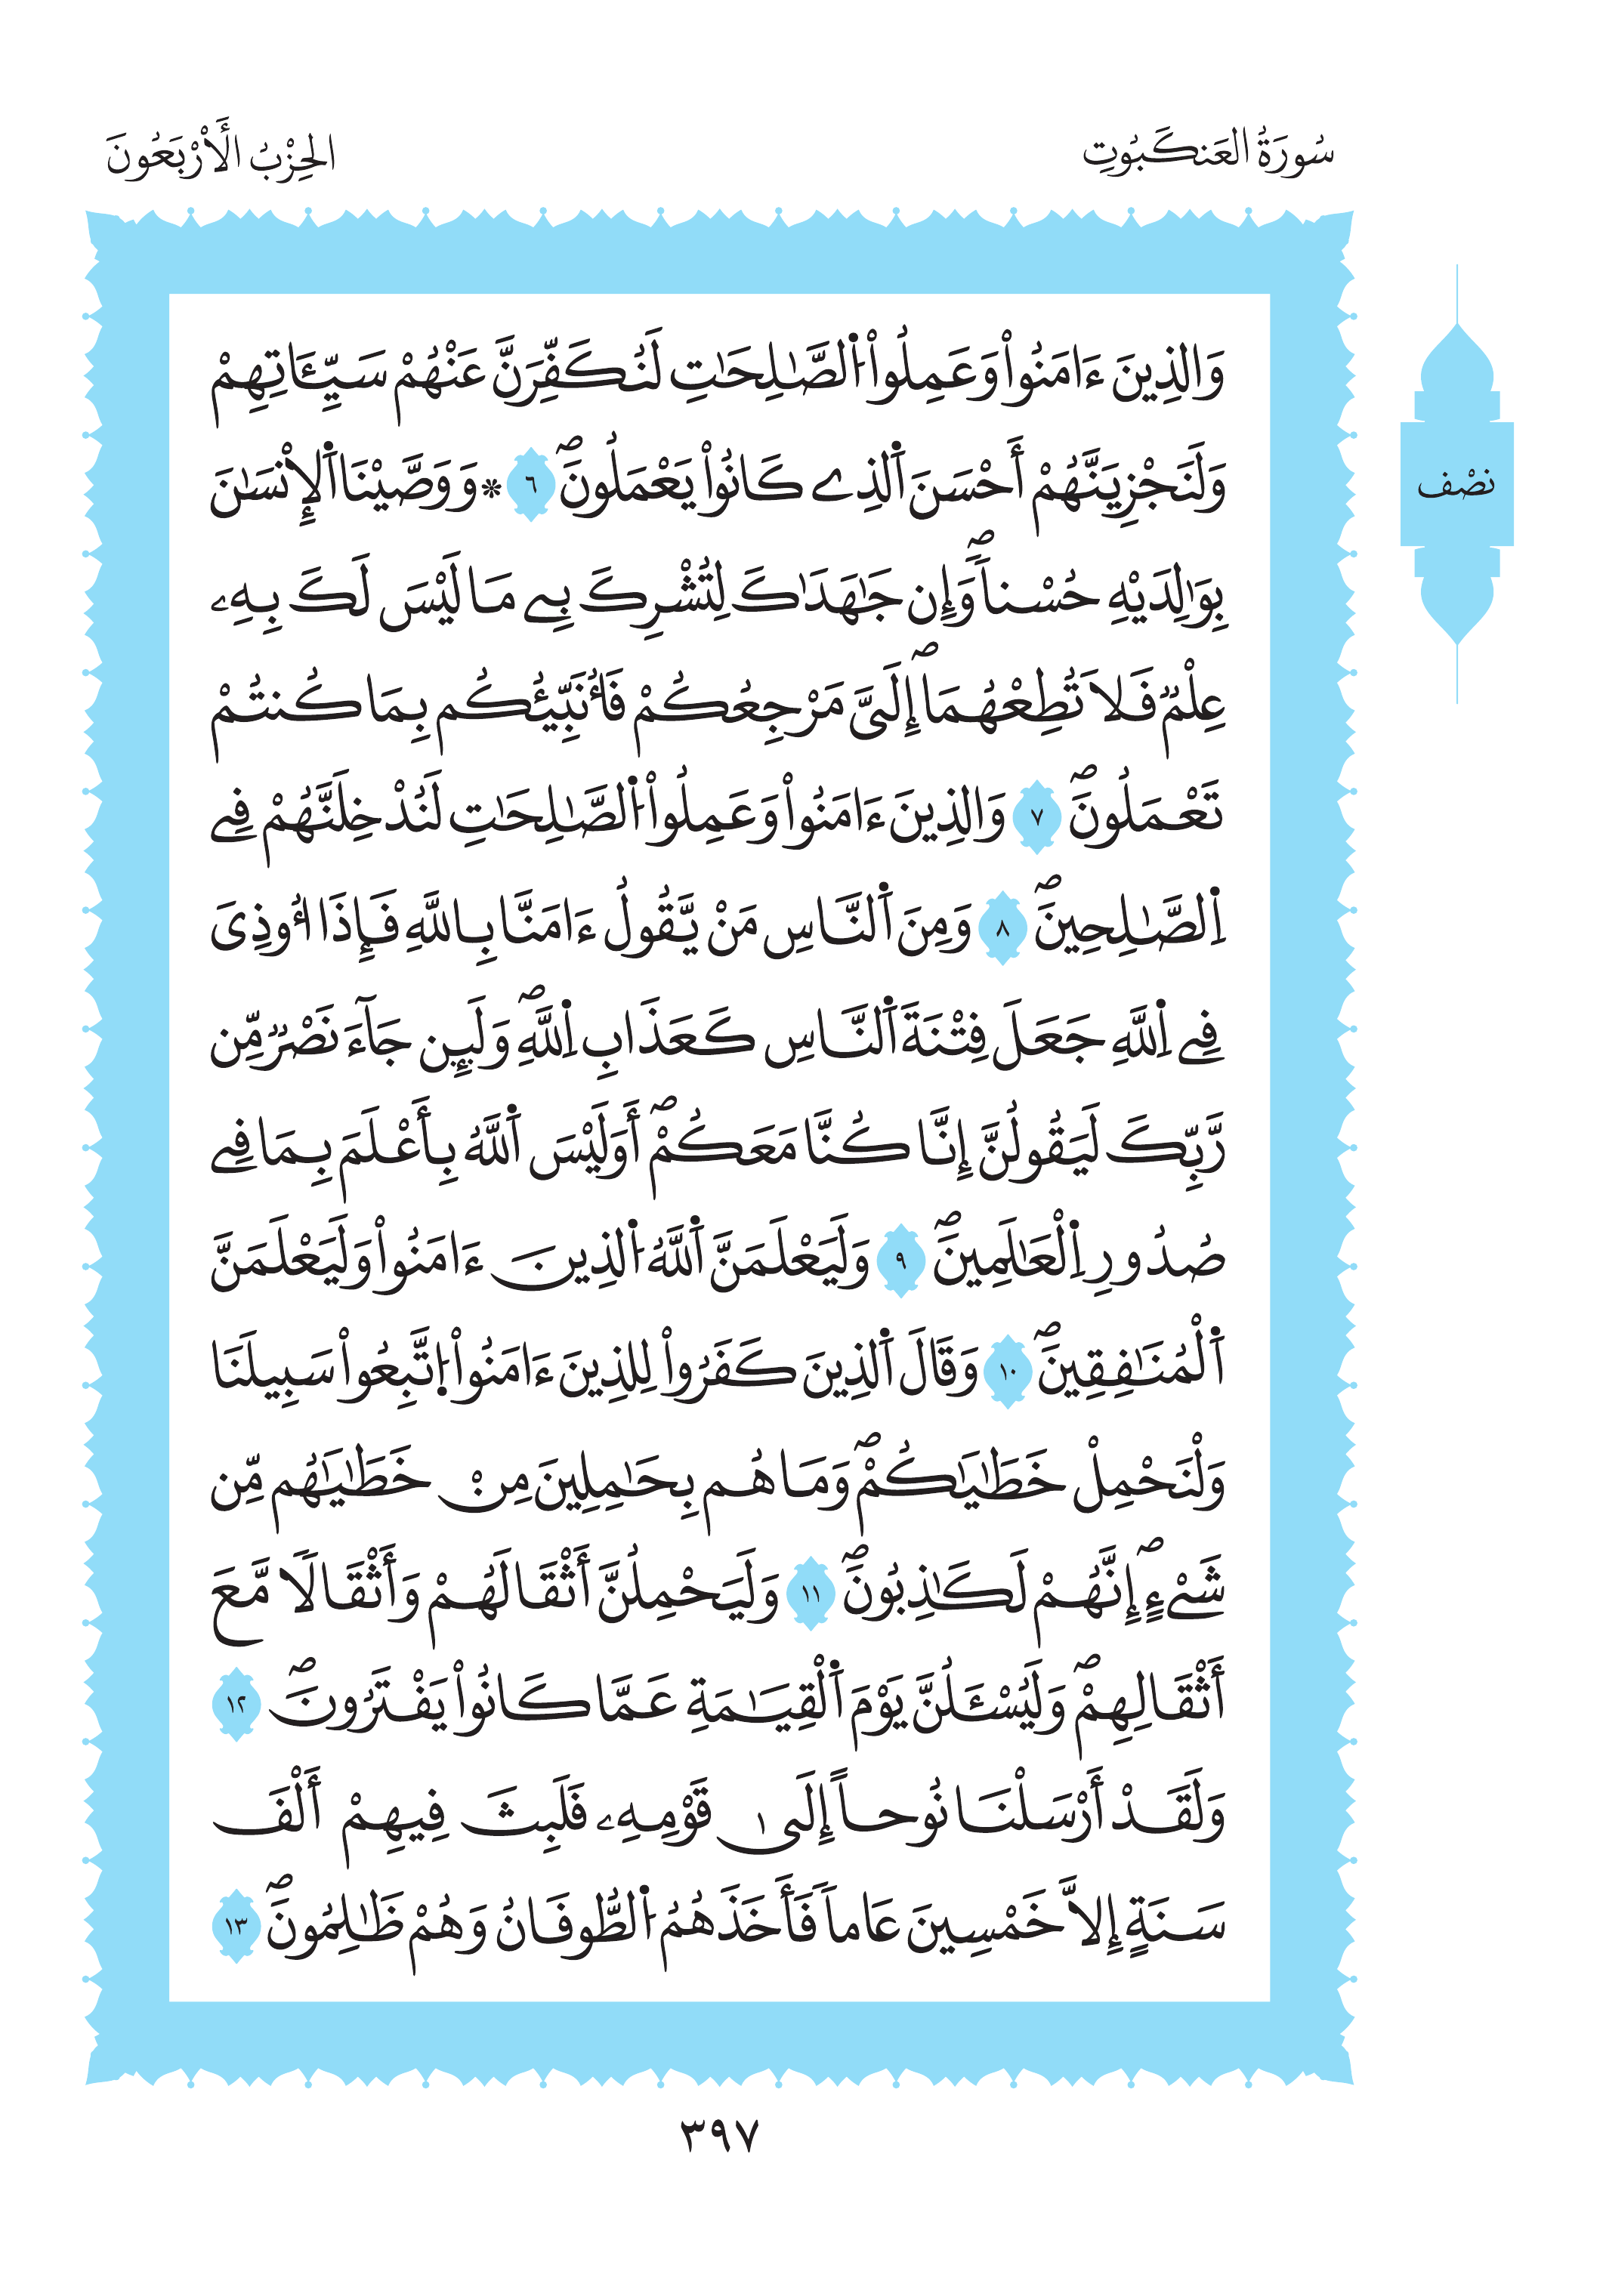 سُورَةُ العَنكَبُوتِ
الحِزْبُ الْأَرْبَعُونَ
نصْف
وَالذِينَ ءَامَنُواْ وَعَمِلُواْ اُ۬لصَّٰلِحَٰتِ لَنُكَفِّرَنَّ عَنْهُمْ سَيِّـَٔاتِهِمْ
وَلَنَجْزِيَنَّهُمْ أَحْسَنَ اَ۬لذِے كَانُواْ يَعْمَلُونَۖ ٦ * وَوَصَّيْنَا اَ۬لْإِنْسَٰنَ
بِوَٰلِدَيْهِ حُسْناٗۖ وَإِن جَٰهَدَٰكَ لِتُشْرِكَ بِے مَا لَيْسَ لَكَ بِهِۦ
عِلْمٞ فَلَا تُطِعْهُمَاۖ إِلَيَّ مَرْجِعُكُمْ فَأُنَبِّئُكُم بِمَا كُنتُمْ
تَعْمَلُونَۖ ٧ وَالذِينَ ءَامَنُواْ وَعَمِلُواْ اُ۬لصَّٰلِحَٰتِ لَنُدْخِلَنَّهُمْ فِے
اِ۬لصَّٰلِحِينَۖ ٨ وَمِنَ اَ۬لنَّاسِ مَنْ يَّقُولُ ءَامَنَّا بِاللَّهِ فَإِذَا أُوذِيَ
فِے اِ۬للَّهِ جَعَلَ فِتْنَةَ اَ۬لنَّاسِ كَعَذَابِ اِ۬للَّهِۖ وَلَئِن جَآءَ نَصْرٞ مِّن
رَّبِّكَ لَيَقُولُنَّ إِنَّا كُنَّا مَعَكُمْۖ أَوَلَيْسَ اَ۬للَّهُ بِأَعْلَمَ بِمَا فِے
صُدُورِ اِ۬لْعَٰلَمِينَۖ ٩ وَلَيَعْلَمَنَّ اَ۬للَّهُ اُ۬لذِينَ ءَامَنُواْ وَلَيَعْلَمَنَّ
اَ۬لْمُنَٰفِقِينَۖ ١٠ وَقَالَ اَ۬لذِينَ كَفَرُواْ لِلذِينَ ءَامَنُواْ اُ۪تَّبِعُواْ سَبِيلَنَا
وَلْنَحْمِلْ خَطَٰيَٰكُمْۖ وَمَا هُم بِحَٰمِلِينَ مِنْ خَطَٰيَٰهُم مِّن
شَےْءٍۖ إِنَّهُمْ لَكَٰذِبُونَۖ ١١ وَلَيَحْمِلُنَّ أَثْقَالَهُمْ وَأَثْقَالٗا مَّعَ
أَثْقَالِهِمْۖ وَلَيُسْـَٔلُنَّ يَوْمَ اَ۬لْقِيَٰمَةِ عَمَّا كَانُواْ يَفْتَرُونَۖ ١٢
وَلَقَدْ أَرْسَلْنَا نُوحاً إِلَىٰ قَوْمِهِۦ فَلَبِثَ فِيهِمْ أَلْفَ
سَنَةٍ إِلَّا خَمْسِينَ عَاماٗ فَأَخَذَهُمُ اُ۬لطُّوفَانُ وَهُمْ ظَٰلِمُونَۖ ١٣
٣٩٧